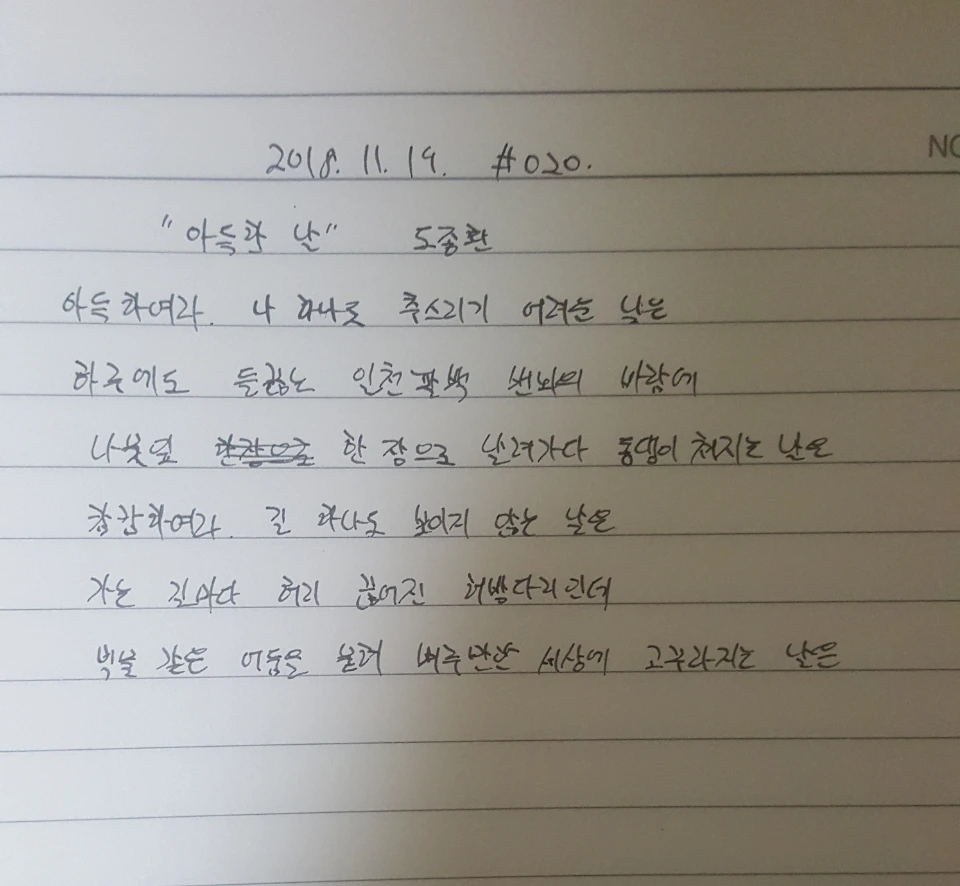 NO
2018. 11. 19. #020.
"아득한 날" 도종환
아득하여라. 나 하나도 추스리기 어려운 날은
하루에도 들끓는 일천팔백 번뇌의 바람에
나뭇잎 한 장으로 날려가다 동댕이 쳐지는 날은
캄캄하여라. 길 하나도 보이지 않는 날은
가는 길마다 허리 끊어진 허방다리인데
먹물 같은 어둠을 벼루만한 세상에 고꾸라지는 날은